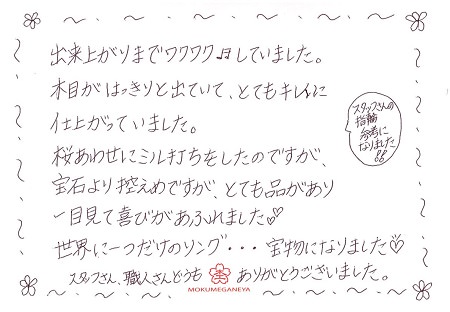 出来上がりまでワクワク♬していました。
木目がはっきりと出ていて、とてもキレイに
仕上がっていました。
桜あわせにミル打ちをしたのですが、
宝石より控えめですが、とても品があり
一目見て喜びがあふれました♡
世界に一つだけのリング・・・宝物になりました♡
スタッフさん、職人さんどうも ありがとうございました。
MOKUMEGANEYA
スタッフさんの
指輪
参考に
なりました